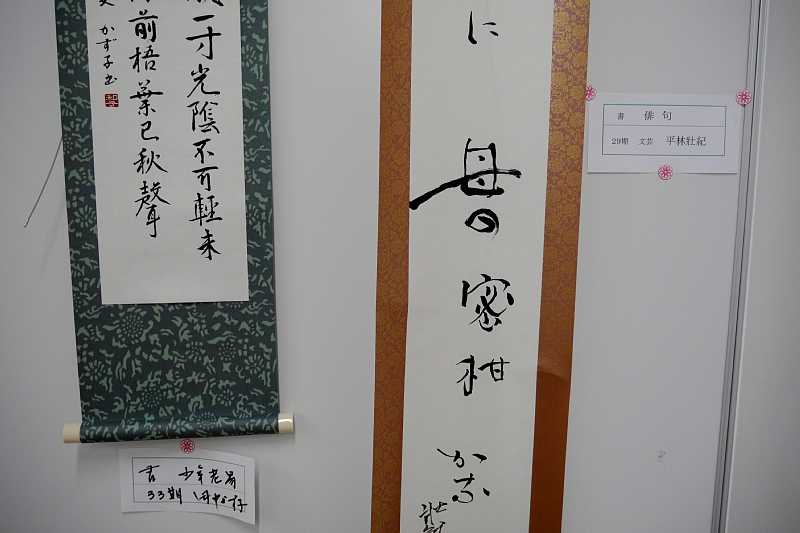 一寸光陰不可輕未
前梧葉已秋聲
かず子書
に母の蜜柑かな
書 俳句
29期 文芸 平林壯紀
書 少年老易
33期